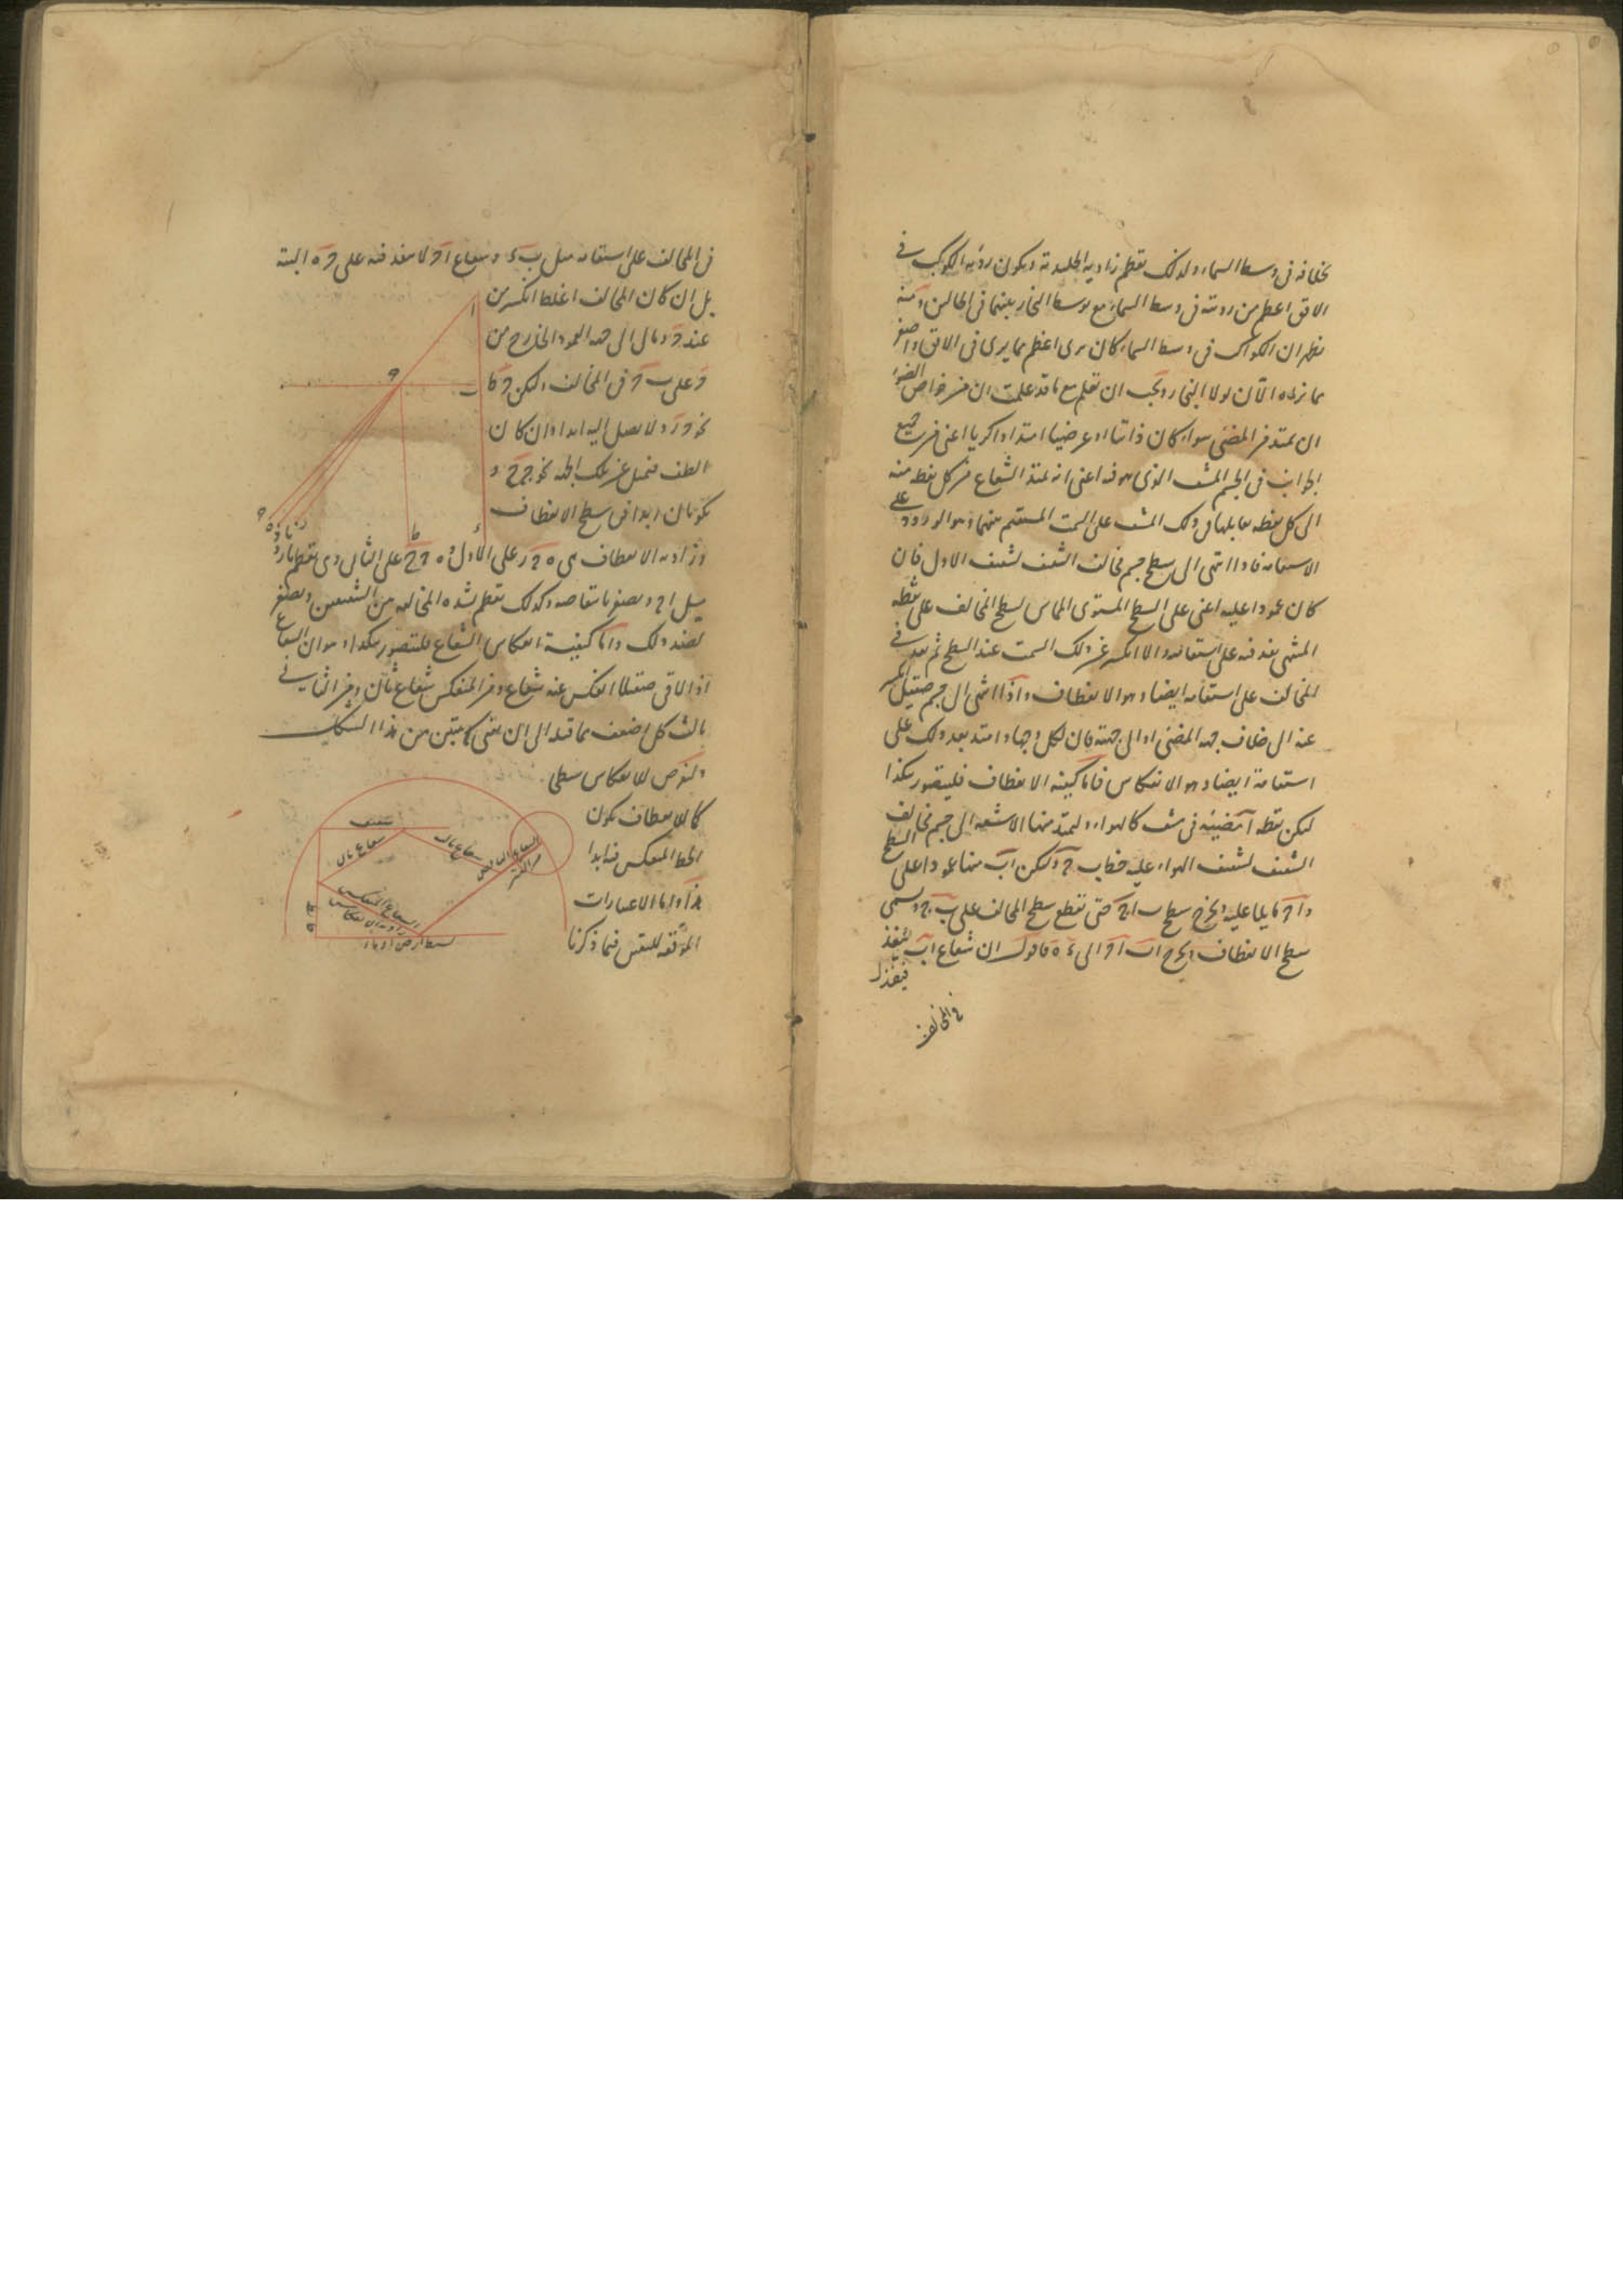 بخلافه فى وسط السماء ولذلك تعظم زاوية الجليدية ويكون رؤية الكوكب فى
الافق اعظم من رويته فى وسط السماء مع توسط البخار بينهما فى الحالين ومنه
يظهر ان الكواكب فى وسط السماء كان يرى اعظم مما يرى فى الافق واصغر
مما نراه الآن لولا البخار ويجب ان تعلم مع ما قد علمت ان من خواص الضوء
ان يمتد من المضئ سواء كان ذاتيا او عرضيا امتدادا كريا اعنى من جميع
الجوانب فى الجسم المشف الذى هو فيه اعنى انه يمتد الشعاع من كل نقطة منه
الى كل نقطة يقابلها فى ذلك المشف على السمت المستقيم بينهما وهو الورود على
الاستقامة فاذا انتهى الى سطح جسم مخالف الشفيف لشفيف الاول فان
كان عمودا عليه اعنى على السطح المستوى المماس لسطح المخالف على نقطة
المنتهى نفذ فيه على استقامته والا انكسر عن ذلك السمت عند السطح ثم نفذ فى
المخالف على استقامة ايضا وهو الانعطاف واذا انتهى الى جرم صقيل انعكس
عنه الى خلاف جهة المضئ او الى جهته فان لكل وجها وامتد بعد ذلك على
استقامة ايضا وهو الانعكاس فاما كيفية الانعطاف فليتصور هكذا
ليكن نقطة آ مضيئة فى مشف كالهواء وليمتد منها الاشعة الى جسم مخالف
الشفيف لشفيف الهواء عليه خطاب ح وليكن اب منها عمودا على السطح
و ا ح مايلا عليه ويخرج سطح ب ا ح حتى يقطع سطح المخالف على ب ح ويسمى
سطح الانعطاف ويخرج ا ب ا ح الى ء ه فاقول ان شعاع ا ب ينفذ
فى المخالف
فى المخالف على استقامته مثل ب ء وشعاع ا ح لا ينفذ فيه على ح ه البتة
بل ان كان المخالف اغلظ انكسر من
عند ح ومال الى جهة العمود الخارج من
ح على ب ح فى المخالف وليكن ح ط
نحو ح ز ولا يصل اليه ابدا وان كان
الطف فيميل عن تلك الجهة نحو ح ح و
يكونان ابدا فى سطح الانعطاف
وزاوية الانعطاف هى ه ح ز على الاول و ه ح ح على الثانى وهى تعظم بازدياد
ميل ا ح وتصغر بانتقاصه وكذلك تعظم لشدة المخالفة من الشفيفين وتصغر
لضد ذلك واما كيفية انعكاس الشعاع فليتصور هكذا وهو ان الشعاع
اذا لاقى صقيلا انعكس عنه شعاع ومن المنعكس شعاع ثان ومن الثانى
ثالث كل اضعف مما قبله الى ان يفنى كما يتبين من هذا الشكل
ولنفرض للانعكاس سطحا
كالانعطاف يكون
الخط المنعكس فيه ابدا
هذا واما الاعتبارات
الموقعة لليقين فيما ذكرنا
ا
ح
ب
ه
ز
ط
ء
سقف
شعاع ثالث
شعاع ثان
الشعاع المنعكس
زاوية الانعكاس
حائط
سطح ارض او ماء